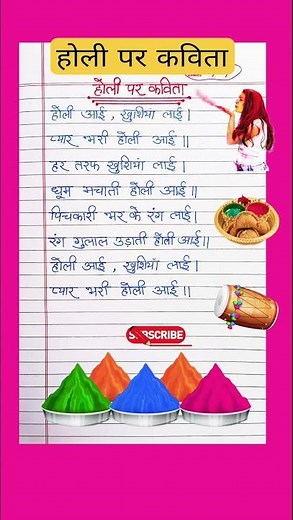 होली पर कविता
होली पर कविता
होली आई , खुशियां लाई |
प्यार भरी होली आई ||
हर तरफ खुशियां लाई |
धूम मचाती होली आई ||
पिचकारी भर के रंग लाई |
रंग गुलाल उड़ाती होली आई ||
होली आई , खुशियाँ लाई |
प्यार भरी होली आई ||
SUBSCRIBE